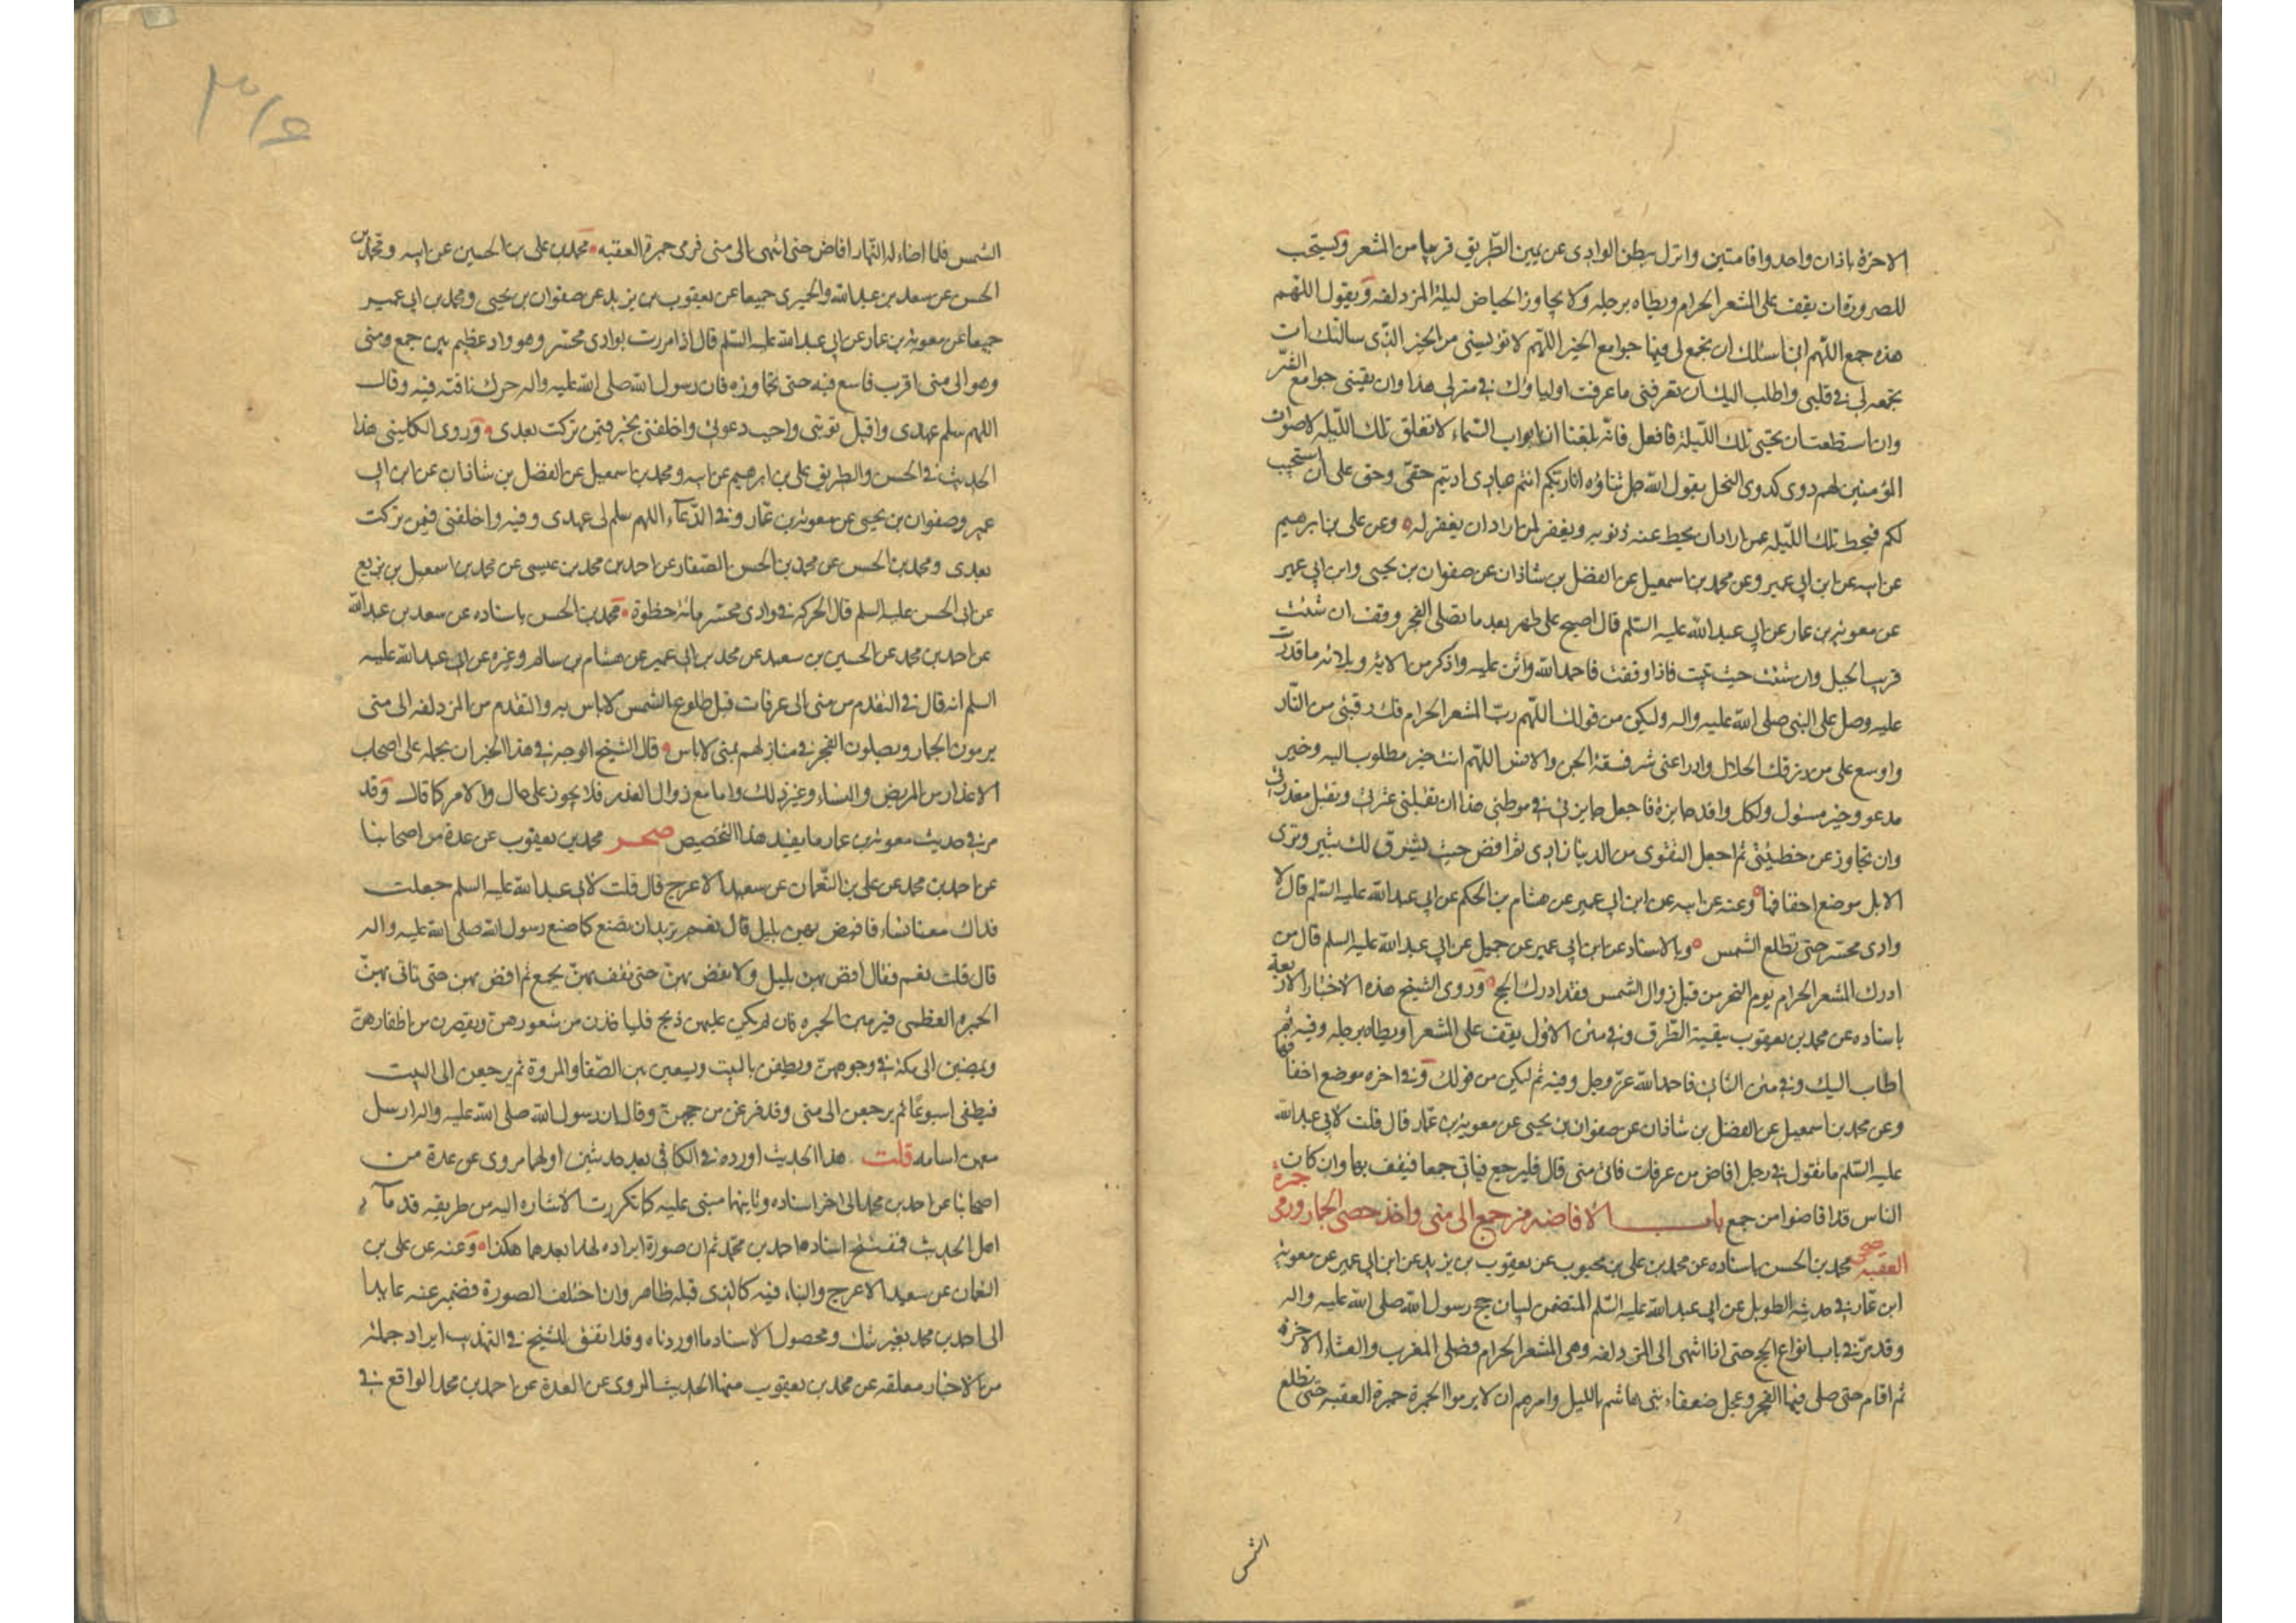 الاخرة باذان واحد واقامتين وانزل ببطن الوادى عن يمين الطريق قريبا من المشعر ويستحب
للصرورة ان يقف على المشعر الحرام ويطاه برجله ولا يجاوز الحياض ليلة المزدلفه ويقول اللهم
هذه جمع اللهم انى اسئلك ان تجمع لى فيها جوامع الخير اللهم لا تؤيسنى من الخير الذى سالتك ان
تجمعه لى فى قلبى واطلب اليك ان تعرفنى ما عرفت اولياؤك فى منزلى هذا وان تقينى جوامع الشر
وان استطعت ان تحيى تلك الليلة فافعل فانه بلغنا ان ابواب السماء لا تغلق تلك الليله لاصوات
المؤمنين لهم دوى كدوى النحل يقول الله جل ثناؤه انا ربكم انتم عبادى اديتم حقى وحق على ان استجيب
لكم فيحط تلك الليله عمن اراد ان يحط عنه ذنوبه ويغفر لمن اراد ان يغفر له وعن على بن ابرهيم
عن ابيه عن ابن ابى عمير وعن محمد بن اسمعيل عن الفضل بن شاذان عن صفوان بن يحيى وابن ابى عمير
عن معوية بن عمار عن ابى عبد الله عليه السلم قال اصبح على طهر بعد ما تصلى الفجر وقف ان شئت
قريب الجبل وان شئت حيث تبيت فاذا وقفت فاحمد الله واثن عليه واذكر من الائه وبلائه ما قدرت
عليه وصل على النبى صلى الله عليه واله وليكن من قولك اللهم رب المشعر الحرام فك رقبتى من النار
واوسع على من رزقك الحلال وادرا عنى شر فسقة الجن والانس اللهم انت خير مطلوب اليه وخير
مدعو وخير مسئول ولكل وافد جايزة فاجعل جايزتى فى موطنى هذا ان تقيلنى عثرتى وتقبل معذرتى
وان تجاوز عن خطيئتى ثم اجعل التقوى من الدنيا زادى ثم افض حيث يشرق لك ثبير وترى
الابل موضع اخفافها وعنه عن ابيه عن ابن ابى عمير عن هشام بن الحكم عن ابى عبد الله عليه السلم قال لا
وادى محسر حتى تطلع الشمس وبالاسناد عن ابن ابى عمير عن جميل عن ابى عبد الله عليه السلم قال من
ادرك المشعر الحرام يوم النحر من قبل زوال الشمس فقد ادرك الحج وروى الشيخ هذه الاخبار الاربعة
باسناده عن محمد بن يعقوب ببقية الطرق وفى متن الاول يقف على المشعر او يطاه برجله وفيه ثم
اطلب اليك وفى متن الثانى فاحمد الله عز وجل وفيه ثم ليكن من قولك وفى اخره موضع اخفافها
وعن محمد بن اسمعيل عن الفضل بن شاذان عن صفوان بن يحيى عن معوية بن عمار قال قلت لابى عبد الله
عليه السلم ما تقول فى رجل افاض من عرفات فاتى منى قال فليرجع فياتى جمعا فيقف بها وان كان
الناس قد افاضوا من جمع باب الافاضه من جمع الى منى واخذ حصى الجمار ورمى جمرة
العقبه صحى محمد بن الحسن باسناده عن محمد بن على بن محبوب عن يعقوب بن يزيد عن ابن ابى عمير عن معوية
ابن عمار فى حديثه الطويل عن ابى عبد الله عليه السلم المتضمن لبيان حج رسول الله صلى الله عليه واله
وقد مر فى باب انواع الحج حتى اذا انتهى الى المزدلفه وهى المشعر الحرام فصلى المغرب والعشاء الاخرة
ثم اقام حتى صلى فيها الفجر وعجل ضعفاء بنى هاشم بالليل وامرهم ان لا يرموا الجمرة جمرة العقبه حتى تطلع
الشمس
٣١٥
الشمس فلما اضاء له النهار افاض حتى انتهى الى منى فرمى جمرة العقبه محمد بن على بن الحسين عن ابيه ومحمد بن
الحسن عن سعد بن عبد الله والحميرى جميعا عن يعقوب بن يزيد عن صفوان بن يحيى ومحمد بن ابى عمير
جميعا عن معوية بن عمار عن ابى عبد الله عليه السلم قال اذا مررت بوادى محسر وهو واد عظيم بين جمع ومنى
وهو الى منى اقرب فاسع فيه حتى تجاوزه فان رسول الله صلى الله عليه واله حرك ناقته فيه وقال
اللهم سلم عهدى واقبل توبتى واجب دعوتى واخلفنى بخير فيمن تركت بعدى وروى الكلينى هذا
الحديث فى الحسن والطريق على بن ابرهيم عن ابيه ومحمد بن اسمعيل عن الفضل بن شاذان عن ابن ابى
عمير وصفوان بن يحيى عن معوية بن عمار وفى الدعاء اللهم سلم لى عهدى وفيه واخلفنى فيمن تركت
بعدى ومحمد بن الحسن عن محمد بن الحسن الصفار عن احمد بن محمد بن عيسى عن محمد بن اسمعيل بن بزيع
عن ابى الحسن عليه السلم قال الحركه فى وادى محسر مائة خطوة محمد بن الحسن باسناده عن سعد بن عبد الله
عن احمد بن محمد عن الحسين بن سعيد عن محمد بن ابى عمير عن هشام بن سالم وغيره عن ابى عبد الله عليه
السلم انه قال فى التقدم من منى الى عرفات قبل طلوع الشمس لا باس به والتقدم من المزدلفه الى منى
يرمون الجمار ويصلون الفجر فى منازلهم بمنى لا باس قال الشيخ الوجه فى هذا الخبر ان نحمله على اصحاب
الاعذار من المريض والنساء وغير ذلك واما مع زوال العذر فلا يجوز على حال والامر كما قال وقد
مر فى حديث معوية بن عمار ما يفيد هذا التخصيص صحر محمد بن يعقوب عن عدة من اصحابنا
عن احمد بن محمد عن على بن النعمان عن سعيد الاعرج قال قلت لابى عبد الله عليه السلم جعلت
فداك معنا نساء فافيض بهن بليل قال نعم تريد ان تصنع كما صنع رسول الله صلى الله عليه واله
قال قلت نعم فقال افض بهن بليل ولا تفض بهن حتى تقف بهن بجمع ثم افض بهن حتى تاتى بهن
الجمره العظمى فيرمين الجمره فان لم يكن عليهن ذبح فلياخذن من شعورهن ويقصرن من اظفارهن
ويمضين الى مكة فى وجوههن ويطفن بالبيت ويسعين بين الصفا والمروة ثم يرجعن الى البيت
فيطفن اسبوعا ثم يرجعن الى منى وقد فرغن من حجهن وقال ان رسول الله صلى الله عليه واله ارسل
معهن اسامه قلت هذا الحديث اورده فى الكافى بعد حديثين اولهما مروى عن عدة من
اصحابنا عن احمد بن محمد الى اخر اسناده وثانيهما مبنى عليه كما تكررت الاشاره اليه من طريقه قدماء
اهل الحديث فافتتح اسناده احمد بن محمد ثم ان صورة ايراده لهذا بعدهما هكذا وعنه عن على بن
النعمان عن سعيد الاعرج والبناء فيه كالذى قبله ظاهر وان اختلف الصورة فضمير عنه عايد
الى احمد بن محمد بغير شك ومحصول الاسناد ما اوردناه وقد اتفق للشيخ فى التهذيب ايراد جملة
من الاخبار معلقه عن محمد بن يعقوب منها الحديث المروى عن العدة عن احمد بن محمد الواقع فى